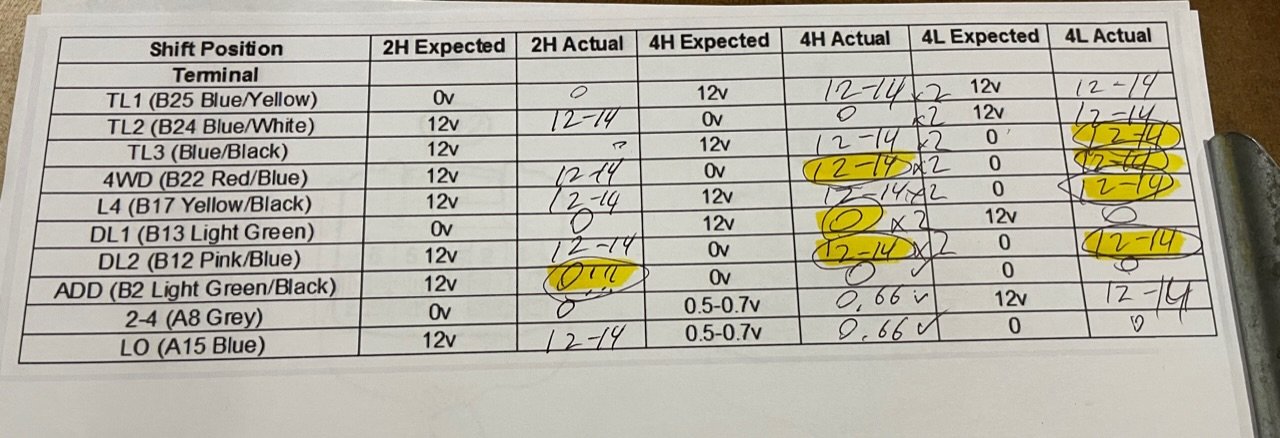 Shift Position 2H Expected 2H Actual 4H Expected 4H Actual 4L Expected 4L Actual
Terminal
TL1 (B25 Blue/Yellow) 0v 0 12v 12-14 x2 12v 12-14
TL2 (B24 Blue/White) 12v 12-14 0v 0 x2 12v 12-14
TL3 (Blue/Black) 12v 12v 12-14 x2 0 12-14
4WD (B22 Red/Blue) 12v 12-14 0v 12-14 x2 0 12-14
L4 (B17 Yellow/Black) 12v 12-14 12v 12-14 x2 0 12-14
DL1 (B13 Light Green) 0v 0 12v 0 x2 12v 0
DL2 (B12 Pink/Blue) 12v 12-14 0v 12-14 x2 0 12-14
ADD (B2 Light Green/Black) 12v 0!!! 0v 0 ✓ 0 0
2-4 (A8 Grey) 0v 0 0.5-0.7v 0.66 ✓ 12v 12-14
LO (A15 Blue) 12v 12-14 0.5-0.7v 0.66 ✓ 0 0